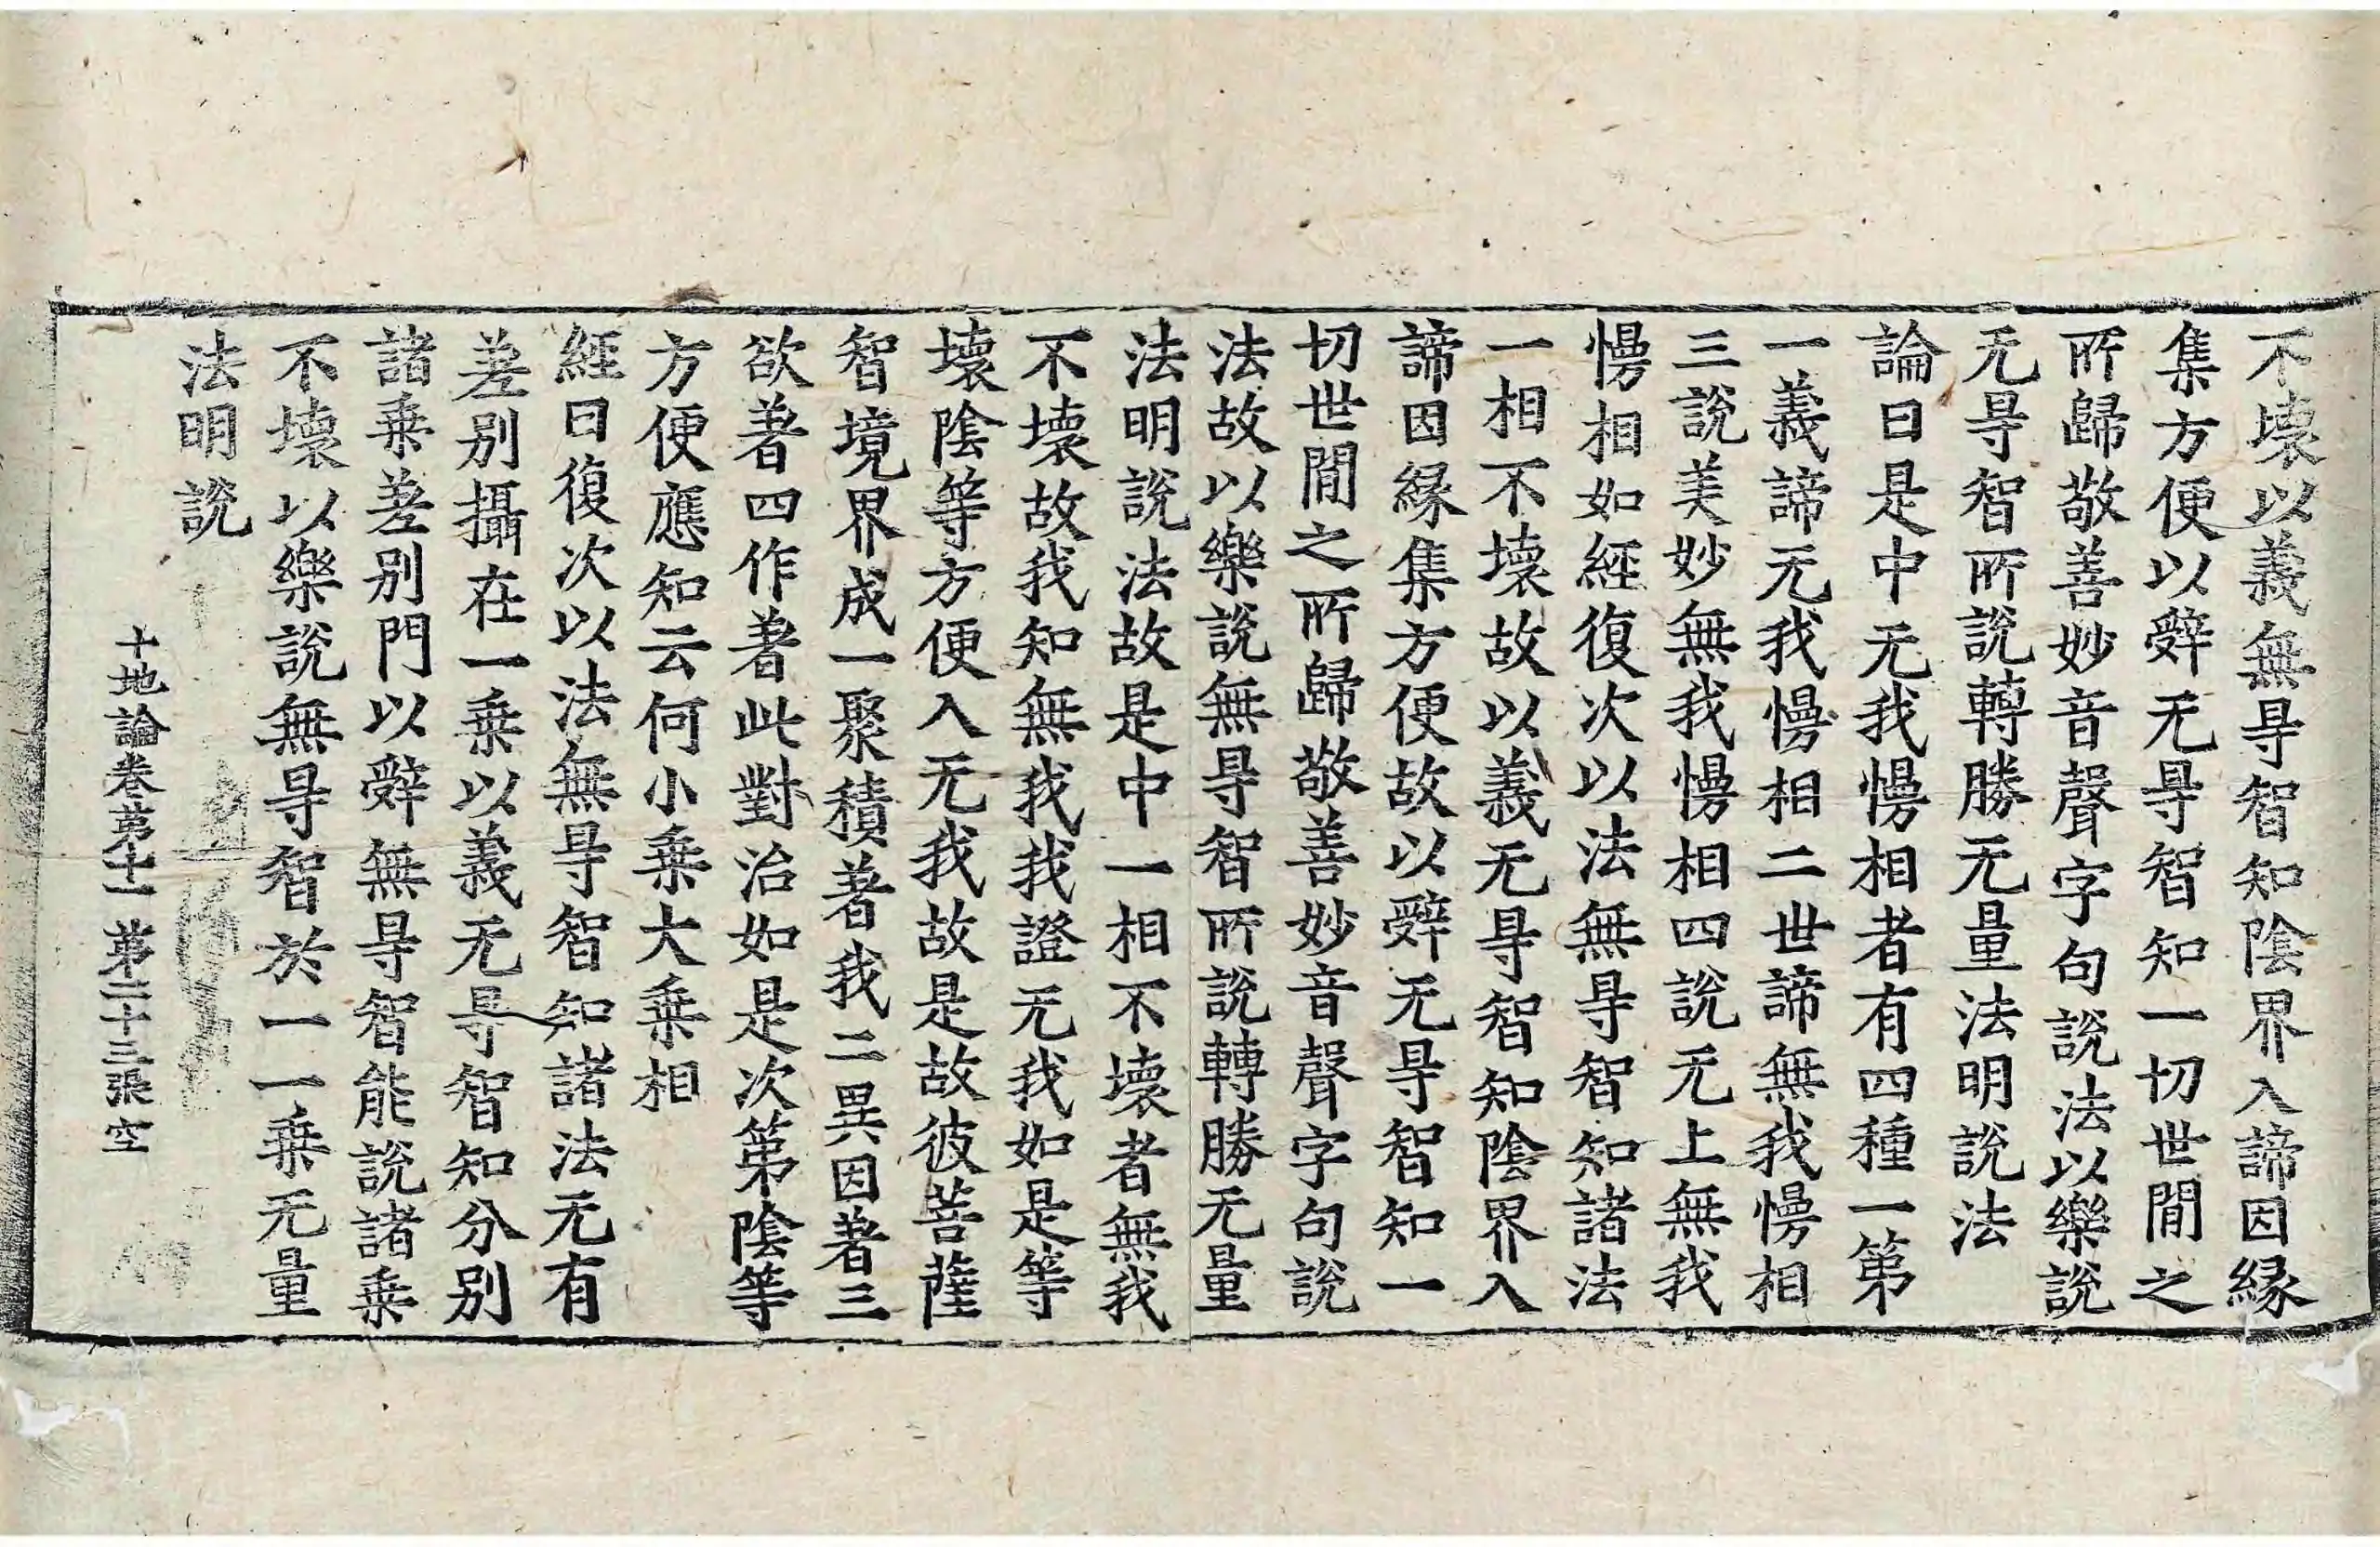 不壞以義無㝵智知陰界入諦因縁
集方便以辤无㝵智知一切世間之
所歸敬善妙音聲字句說法以樂說
无㝵智所說轉勝无量法明說法
論曰是中无我慢相者有四種一第
一義諦无我慢相二世諦無我慢相
三說美妙無我慢相四說无上無我
慢相如經復次以法無㝵智知諸法
一相不壞故以義无㝵智知陰界入
諦因縁集方便故以辤无㝵智知一
切世間之所歸敬善妙音聲字句說
法故以樂說無㝵智所說轉勝无量
法明說法故是中一相不壞者無我
不壞故我知無我我證无我如是等
壞陰等方便入无我故是故彼菩薩
智境界成一聚積著我二異因著三
欲著四作著此對治如是次第陰等
方便應知云何小乗大乗相
經曰復次以法無㝵智知諸法无有
差别攝在一乗以義无㝵智知分别
諸乗差别門以辤無㝵智能說諸乗
不壞以樂說無㝵智於一一乗无量
法明說
十地論卷第十一 第二十三張 空